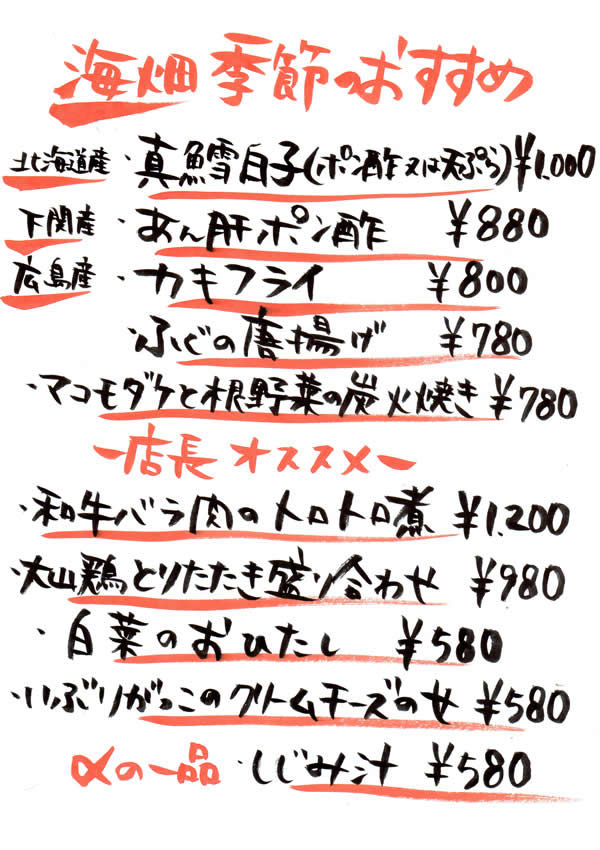 海畑 季節のおすすめ
北海道産・真鱈白子(ポン酢又は天ぷら)¥1.000
下関産・あん肝ポン酢 ¥880
広島産・カキフライ ¥800
・ふぐの唐揚げ ¥780
・マコモダケと根野菜の炭火焼き ¥780
ー店長オススメー
・和牛バラ肉のトロトロ煮 ¥1.200
・大山鶏とりたたき盛り合わせ ¥980
・白菜のおひたし ¥580
・いぶりがっこのクリームチーズの せ ¥580
αの一品・しじみ汁 ¥580